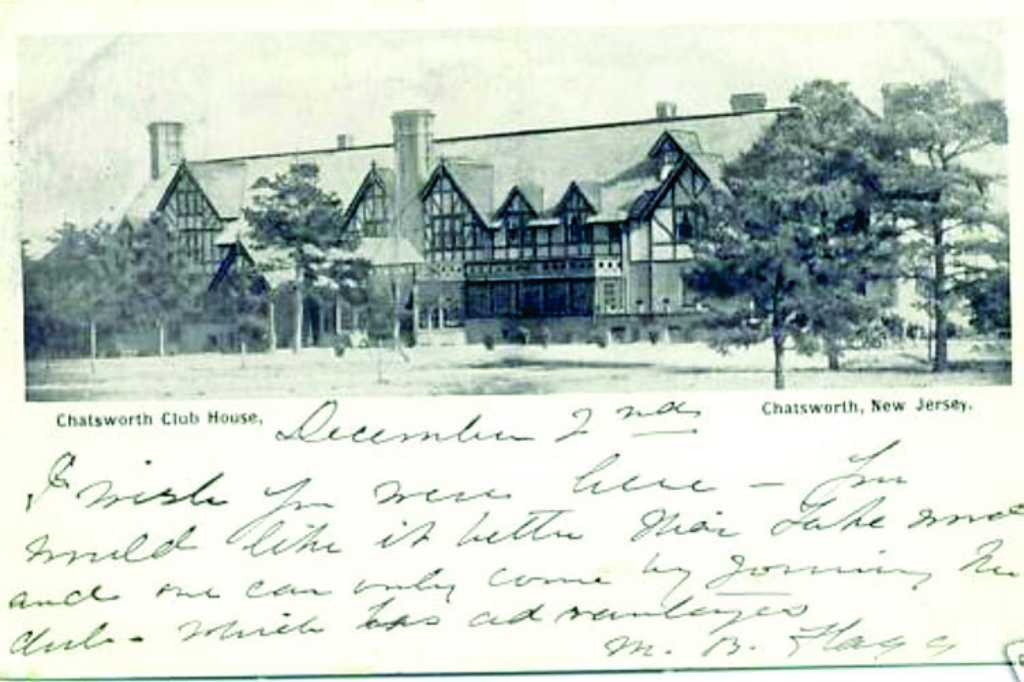 Chatsworth Club House,
Chatsworth, New Jersey.
December 2nd
I wish you were here - You
would like it better than Lake wood
and one can only come by joining the
club - which has advantages
M. B. Flagg